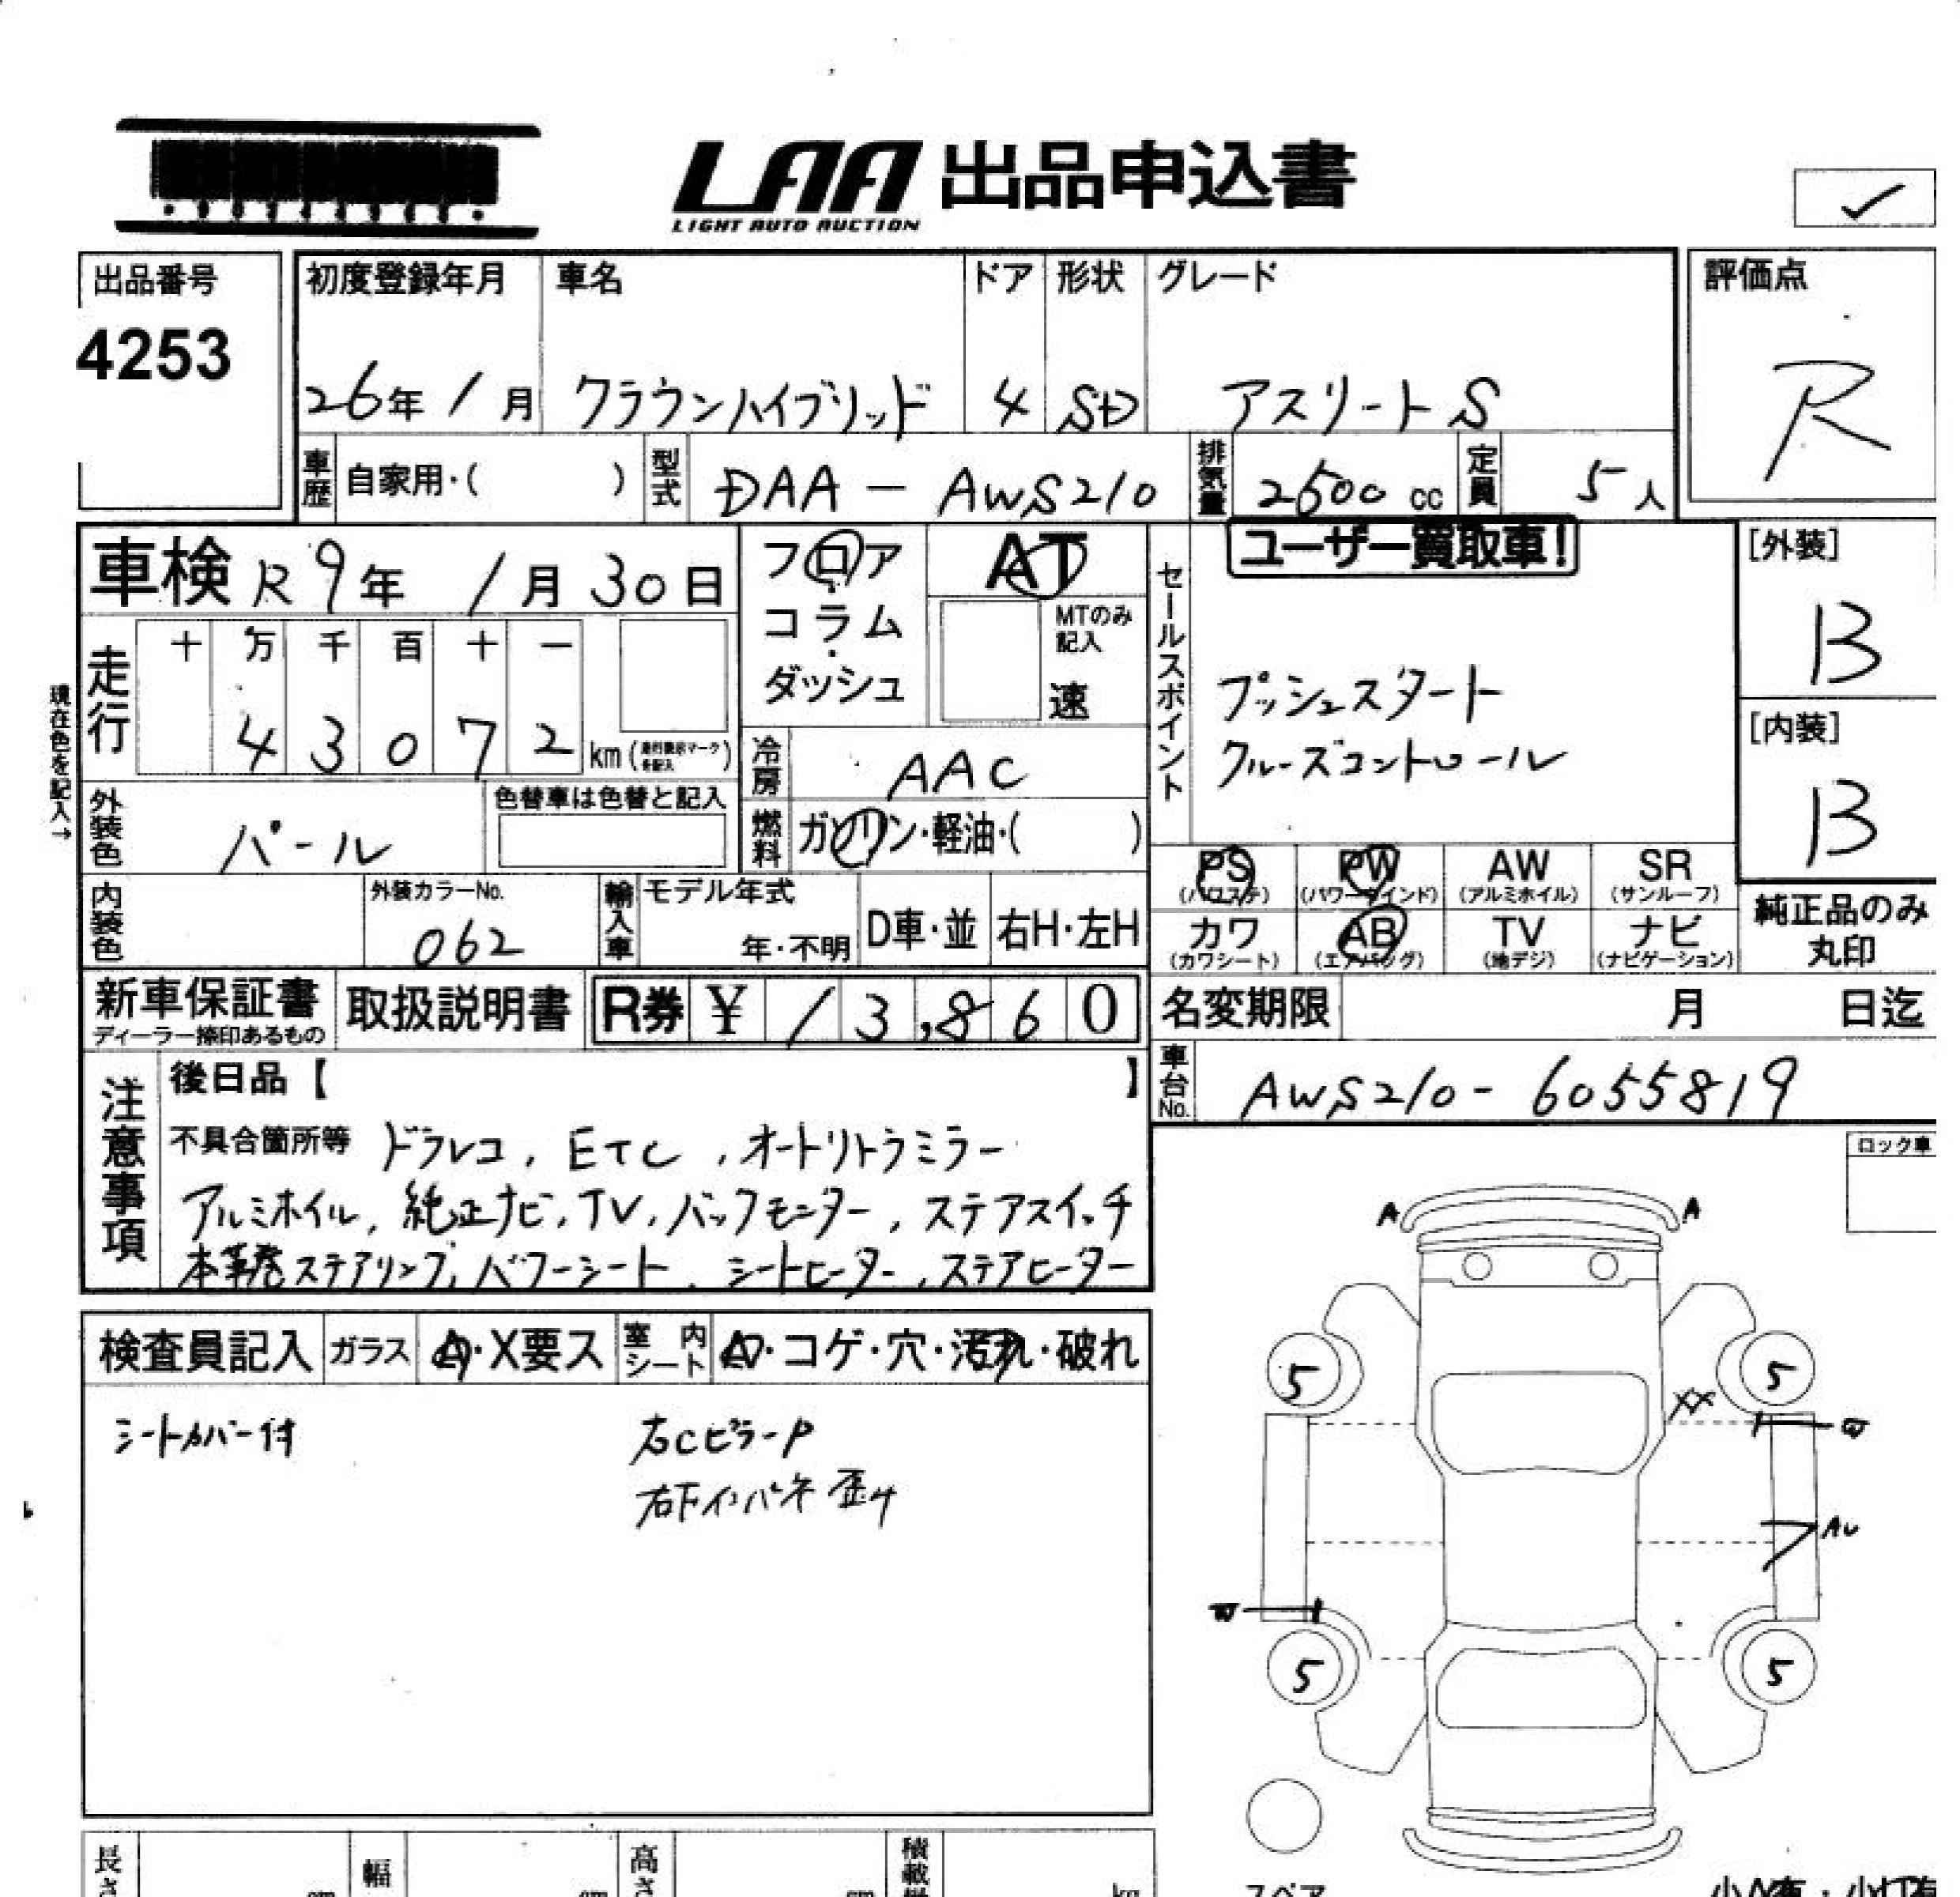 LAA 出品申込書
LIGHT AUTO AUCTION
出品番号
4253
初度登録年月 車名 ドア 形状 グレード
26年 1月 クラウンハイブリッド 4 SD アスリートS
評価点
R
車歴 自家用・( ) 型式 DAA - AWS210 排気量 2500 cc 定員 5人
車検 R9年 1月30日
フロア
コラム
ダッシュ
AT
MTのみ
記入
速
セールスポイント
ユーザー買取車!
プッシュスタート
クルーズコントロール
[外装]
B
[内装]
B
現在色を記入→
走行 十 万 千 百 十 一
4 3 0 7 2 km (走行表示マークを記入)
冷房 AAC
外装色 パール 色替車は色替と記入
燃料 ガソリン・軽油・( )
PS PW AW SR
(パワステ) (パワーウインド) (アルミホイル) (サンルーフ)
カワ AB TV ナビ
(カワシート) (エアバッグ) (地デジ) (ナビゲーション)
純正品のみ
丸印
内装色 外装カラーNo. 062 輸入車 モデル年式 年・不明 D車・並 右H・左H
新車保証書 取扱説明書 R券 ¥ 13,860
ディーラー捺印あるもの
名変期限 月 日迄
車台No. AWS210-6055819
注意事項
後日品【 】
不具合箇所等 ドラレコ, ETC, オートリトラミラー
アルミホイル, 純正ナビ, TV, バックモニター, ステアスイッチ
本革巻ステアリング, パワーシート, シートヒーター, ステアヒーター
ロック車
検査員記入 ガラス A・X要ス 室内シート ・コゲ・穴・汚れ・破れ
シートカバー付
右CピラーP
右下インパネ歪み
A A
5 5
XX
W
AU
W
5 5
長さ cm 幅 cm 高さ cm 積載 kg
スペア